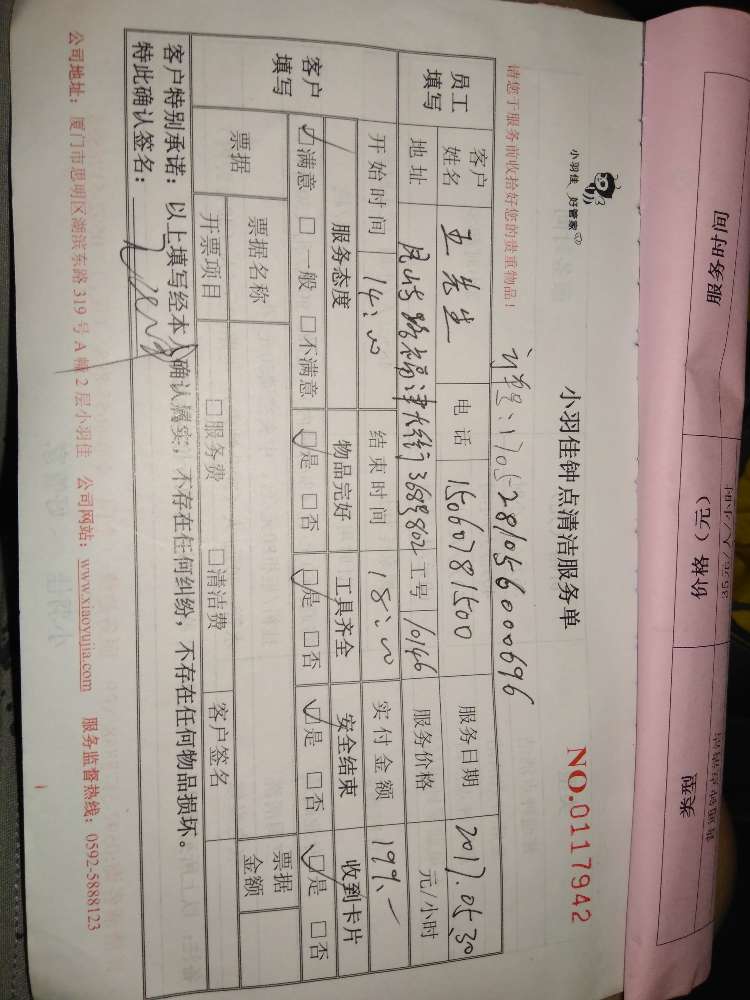 服务时间
价格（元）
类型
小羽佳 好管家
小羽佳钟点清洁服务单
NO.0117942
请您于服务前收拾好您的贵重物品！
订单号：1705281056000696
员工填写
客户姓名 王先生 电话 15060781500 服务日期 2017.05.30
地址 3689802 工号 10146 服务价格 元/小时
客户填写
开始时间 14：00 结束时间 18：00 实付金额 199.-
服务态度 物品完好 工具齐全 安全结束 收到卡片
☑满意 □一般 □不满意 ☑是 □否 ☑是 □否 ☑是 □否 ☑是 □否
票据
票据名称 票据金额
开票项目 □服务费 □清洁费 客户签名
客户特别承诺：以上填写经本人确认属实，不存在任何纠纷，不存在任何物品损坏。
特此确认签名：
公司地址：厦门市思明区湖滨东路319号A幢2层小羽佳 公司网站：www.xiaoyujia.com 服务监督热线：0592-5888123